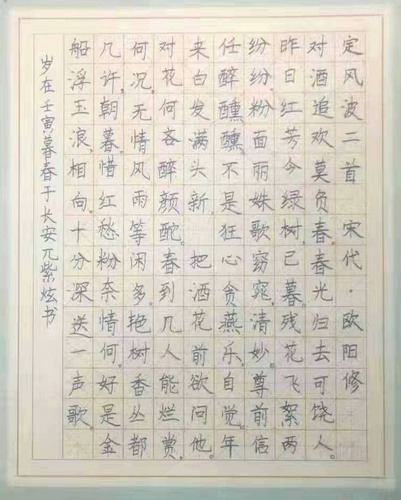 定风波二首 宋代·欧阳修
对酒追欢莫负春，春光归去可饶人。
昨日红芳今绿树，已暮，残花飞絮两
纷纷。粉面丽姝歌窈窕，清妙，尊前信
任醉醺醺。不是狂心贪燕乐，自觉，年
来白发满头新。把酒花前欲问他，
对花何吝醉颜酡。春到几人能烂赏，
何况，无情风雨等闲多。艳树香丛都
几许，朝暮，惜红愁粉奈情何。好是金
船浮玉浪，相向，十分深送一声歌。
岁在壬寅暮春于长安兀紫炫书